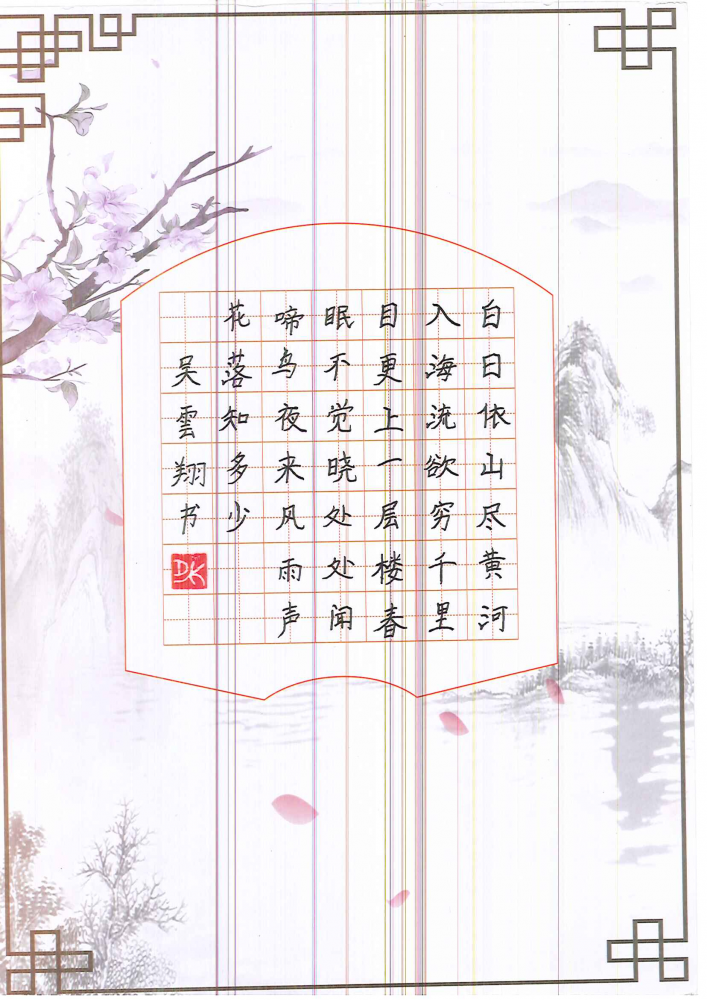 白日依山尽黄河
入海流欲穷千里
目更上一层楼春
眠不觉晓处处闻
啼鸟夜来风雨声
花落知多少
吴雲翔书
DK